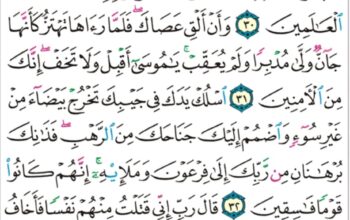 ٱلْعَـٰلَمِينَ ٣٠ وَأَنْ أَلْقِ عَصَاكَ فَلَمَّا رَءَاهَا تَهْتَزُّ كَأَنَّهَا
جَآنٌّ وَلَّىٰ مُدْبِرًا وَلَمْ يُعَقِّبْ يَـٰمُوسَىٰٓ أَقْبِلْ وَلَا تَخَفْ إِنَّكَ
مِنَ ٱلْـَٔامِنِينَ ٣١ ٱسْلُكْ يَدَكَ فِى جَيْبِكَ تَخْرُجْ بَيْضَآءَ مِنْ
غَيْرِ سُوٓءٍ وَٱضْمُمْ إِلَيْكَ جَنَاحَكَ مِنَ ٱلرَّهْبِ فَذَٰنِكَ
بُرْهَـٰنَانِ مِن رَّبِّكَ إِلَىٰ فِرْعَوْنَ وَمَلَإِيْهِۦٓ إِنَّهُمْ كَانُوا۟
قَوْمًا فَـٰسِقِينَ ٣٢ قَالَ رَبِّ إِنِّى قَتَلْتُ مِنْهُمْ نَفْسًا فَأَخَافُ